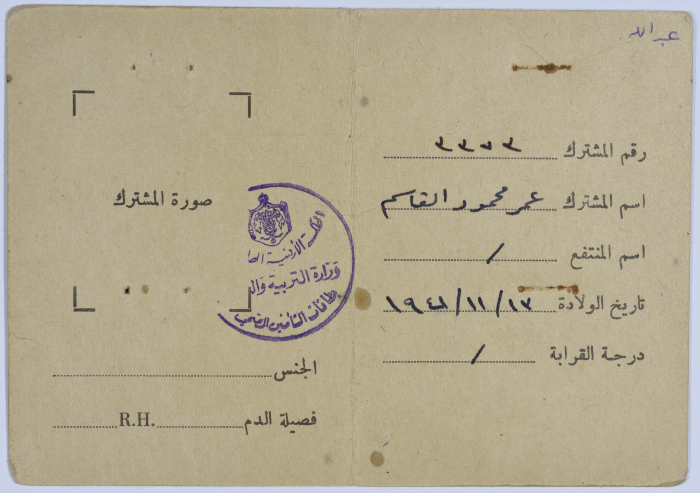 عبدالله
رقم المشترك
اسم المشترك عمر محمود القاسم
اسم المنتفع /
تاريخ الولادة ١٣/١١/١٩٤١
درجة القرابة /
صورة المشترك
المملكة الأردنية
وزارة التربية
بطاقات التأمين الصحي
الجنس
فصيلة الدم R.H.